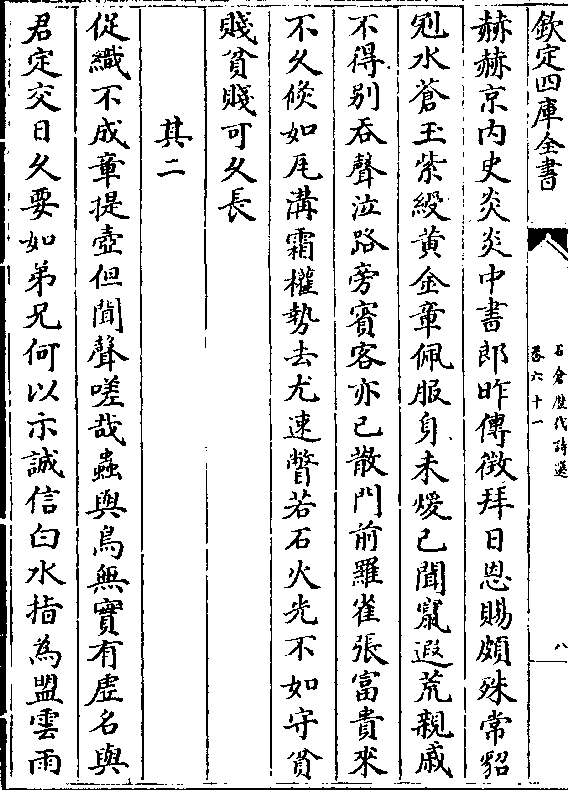 欽定四庫全書
石倉歷代詩選
卷六十一
八
赫赫京內史炎炎中書郎昨傳徵拜日恩賜頗殊常貂
冠水蒼玉紫綬黃金章佩服身未煖已聞竄遐荒親戚
不得別吞聲泣路旁賓客亦已散門前羅雀張富貴來
不久倏如瓦溝霜權勢去尤速瞥若石火光不如守貧
賤貧賤可久長
其二
促織不成章提壺但聞聲嗟哉蟲與鳥無實有虛名與
君定交日久要如弟兄何以示誠信白水指為盟雲雨